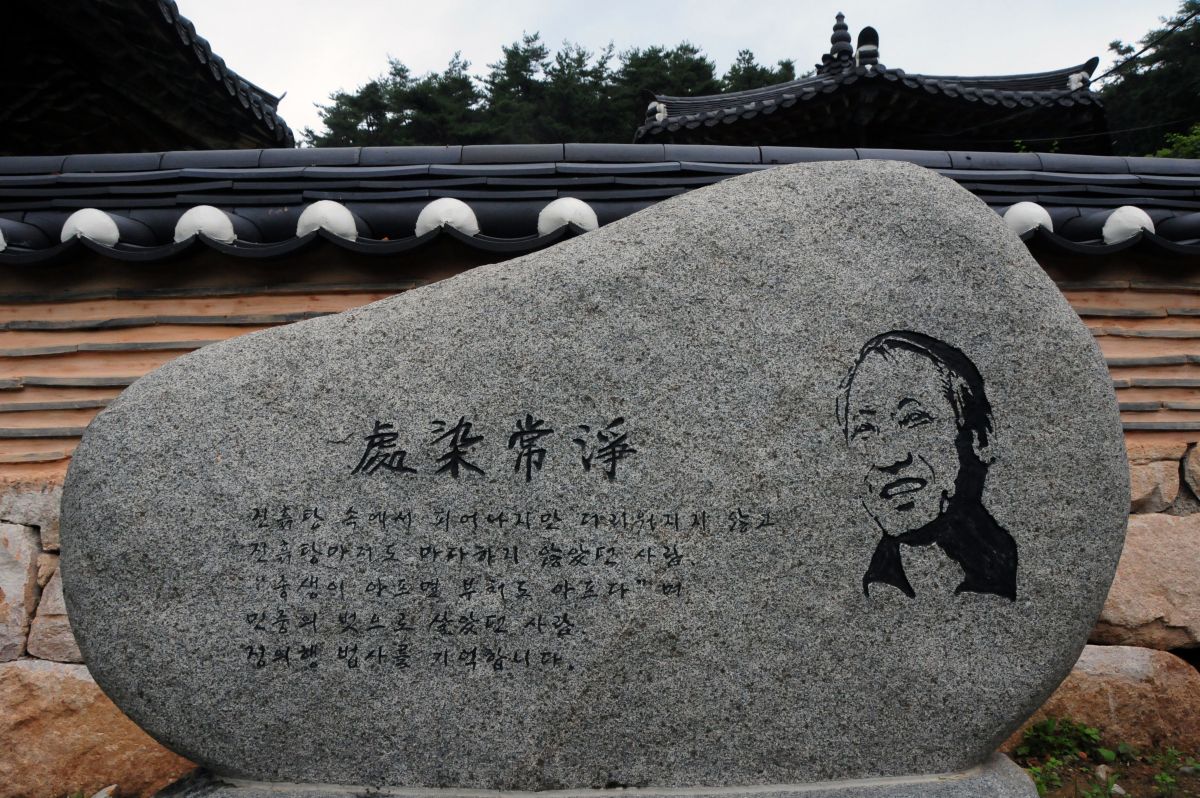 處染常淨
진흙탕 속에서 피어나지만 더러워지지 않고
진흙탕마저도 마다하지 않았던 사람.
"중생이 아프면 부처도 아프다"며
민중의 벗으로 살았던 사람.
정의행 법사를 기억합니다.